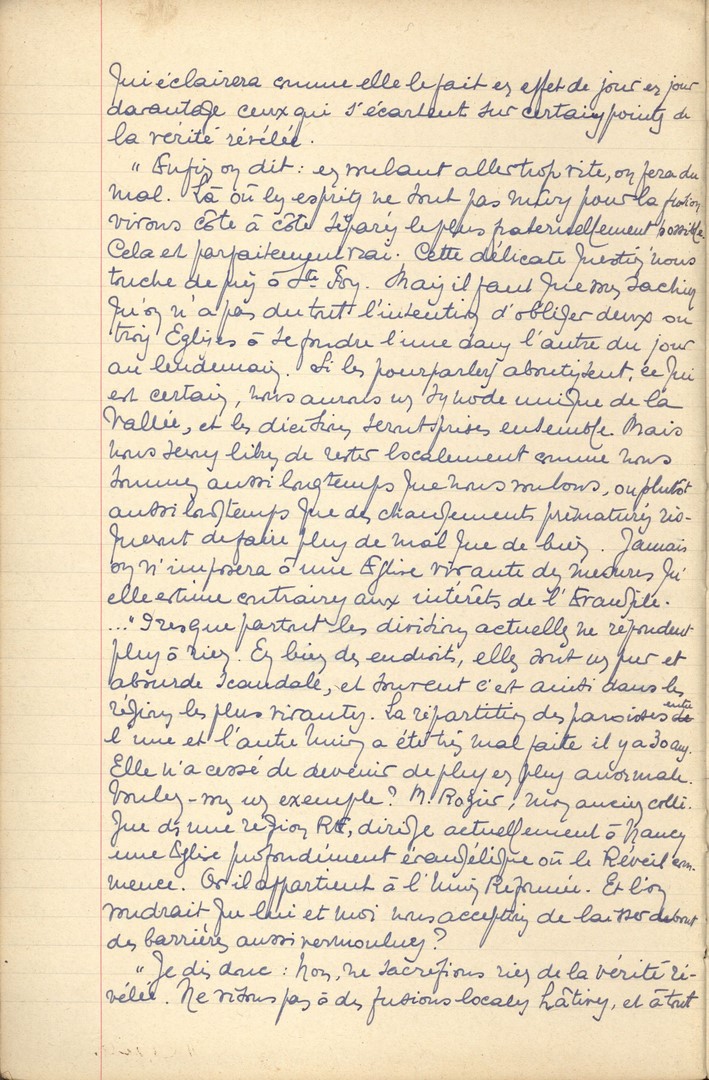 qui éclairera comme elle le fait en effet de jour en jour
davantage ceux qui s'écartent sur certains points de
la vérité révélée.
" Enfin on dit : en voulant aller trop vite, on fera du
mal. Là où les esprits ne sont pas mûrs pour la fusion
vivons côte à côte séparés le plus fraternellement possible.
Cela est parfaitement vrai. Cette délicate question nous
touche de près à Ste Foy. Mais il faut que vous sachiez
qu'on n'a pas du tout l'intention d'obliger deux ou
trois Eglises à se fondre l'une dans l'autre du jour
au lendemain. Si les pourparlers aboutissent, ce qui
est certain, nous aurons un synode unique de la
Vallée, et les décisions seront prises ensemble. Mais
nous serons libres de rester localement comme nous
sommes aussi longtemps que nous voulons, ou plutôt
aussi longtemps que des changements prématurés ris-
queront de faire plus de mal que de bien. Jamais
on n'imposera à une Eglise vivante des mesures qu'
elle estime contraires aux intérêts de l'Evangile.
..." Presque partout les divisions actuelles ne répondent
plus à rien. En bien des endroits, elles sont un pur et
absurde scandale, et souvent c'est ainsi dans les
régions les plus vivantes. La répartition des paroisses entre
l'une et l'autre Union a été très mal faite il y a 30 ans.
Elle n'a cessé de devenir de plus en plus anormale.
Voulez-vous un exemple? M. Rozier, mon ancien collè-
gue d'une région , dirige actuellement à Nancy
une Eglise profondément évangélique où le Réveil com-
mence. Or il appartient à l'Union Réformée. Et l'on
voudrait que lui et moi nous acceptions de laisser debout
des barrières aussi vermoulues?
" Je dis donc : Non, ne sacrifions rien de la vérité ré-
vélée. Ne visons pas à des fusions locales hâtives, et à tout